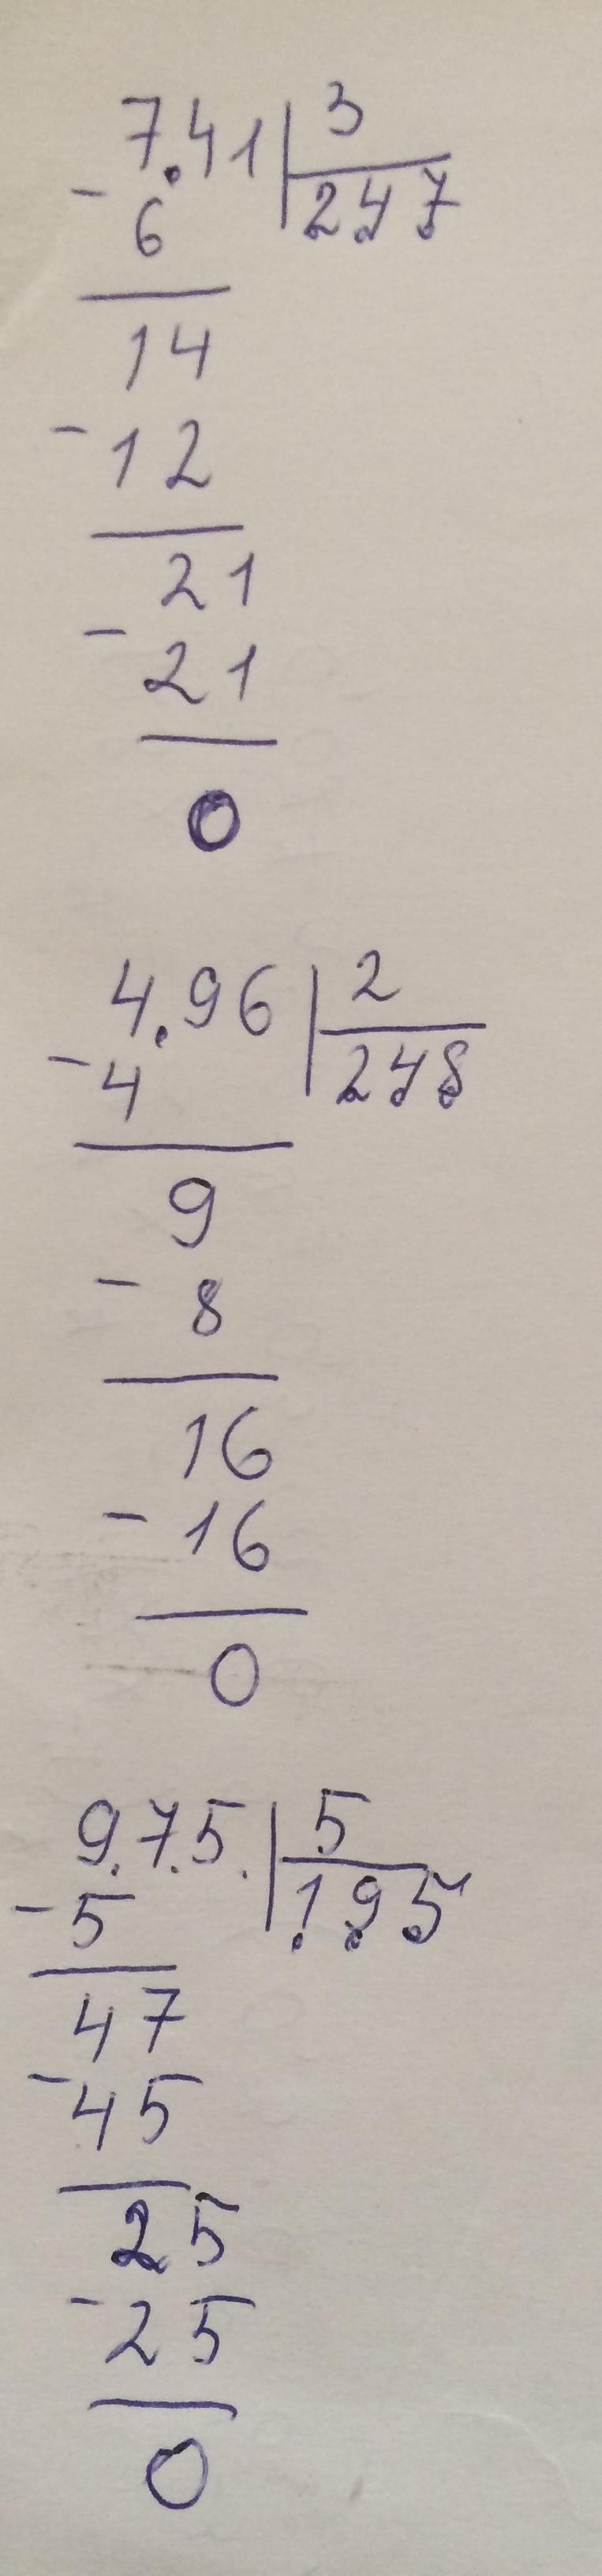 7.41 3
- 6 247
14
- 12
21
- 21
0
4.96 2
- 4 248
9
- 8
16
- 16
0
9.7.5. 5
- 5 195
47
- 45
25
- 25
0